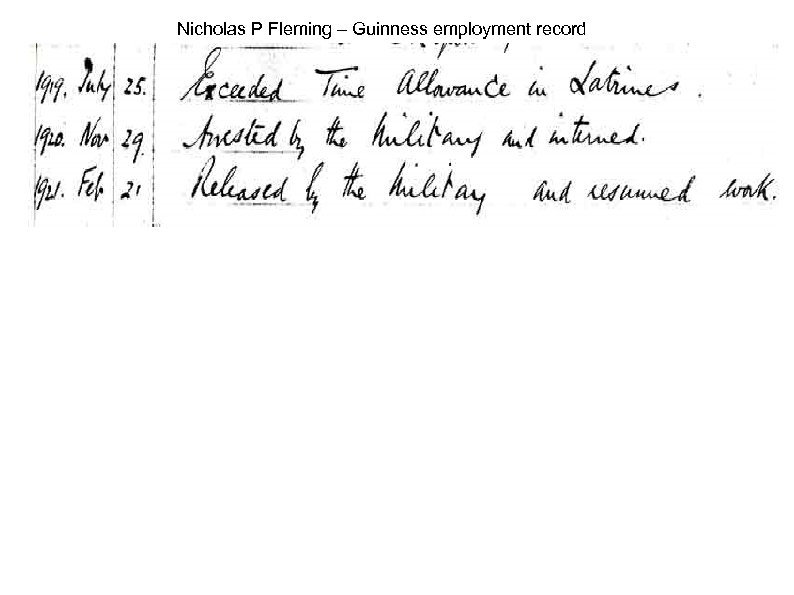 Nicholas P Fleming – Guinness employment record
1919. July 25. Exceeded Time Allowance in Latrines.
1920. Nov 29. Arrested by the Military and interned.
1921. Feb 21 Released by the Military and resumed work.